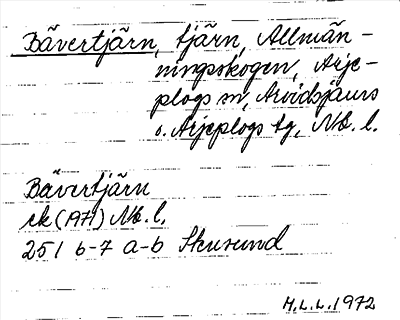 Bävertjärn, tjärn, Allmän-
ningsskogen, Arje-
plogs sn, Arvidsjaurs
o. Arjeplogs tg, Nb. l.
Bävertjärn
ek (1971) Nb. l.
25 I 6-7 a-b Skusund
H.L.L. 1972